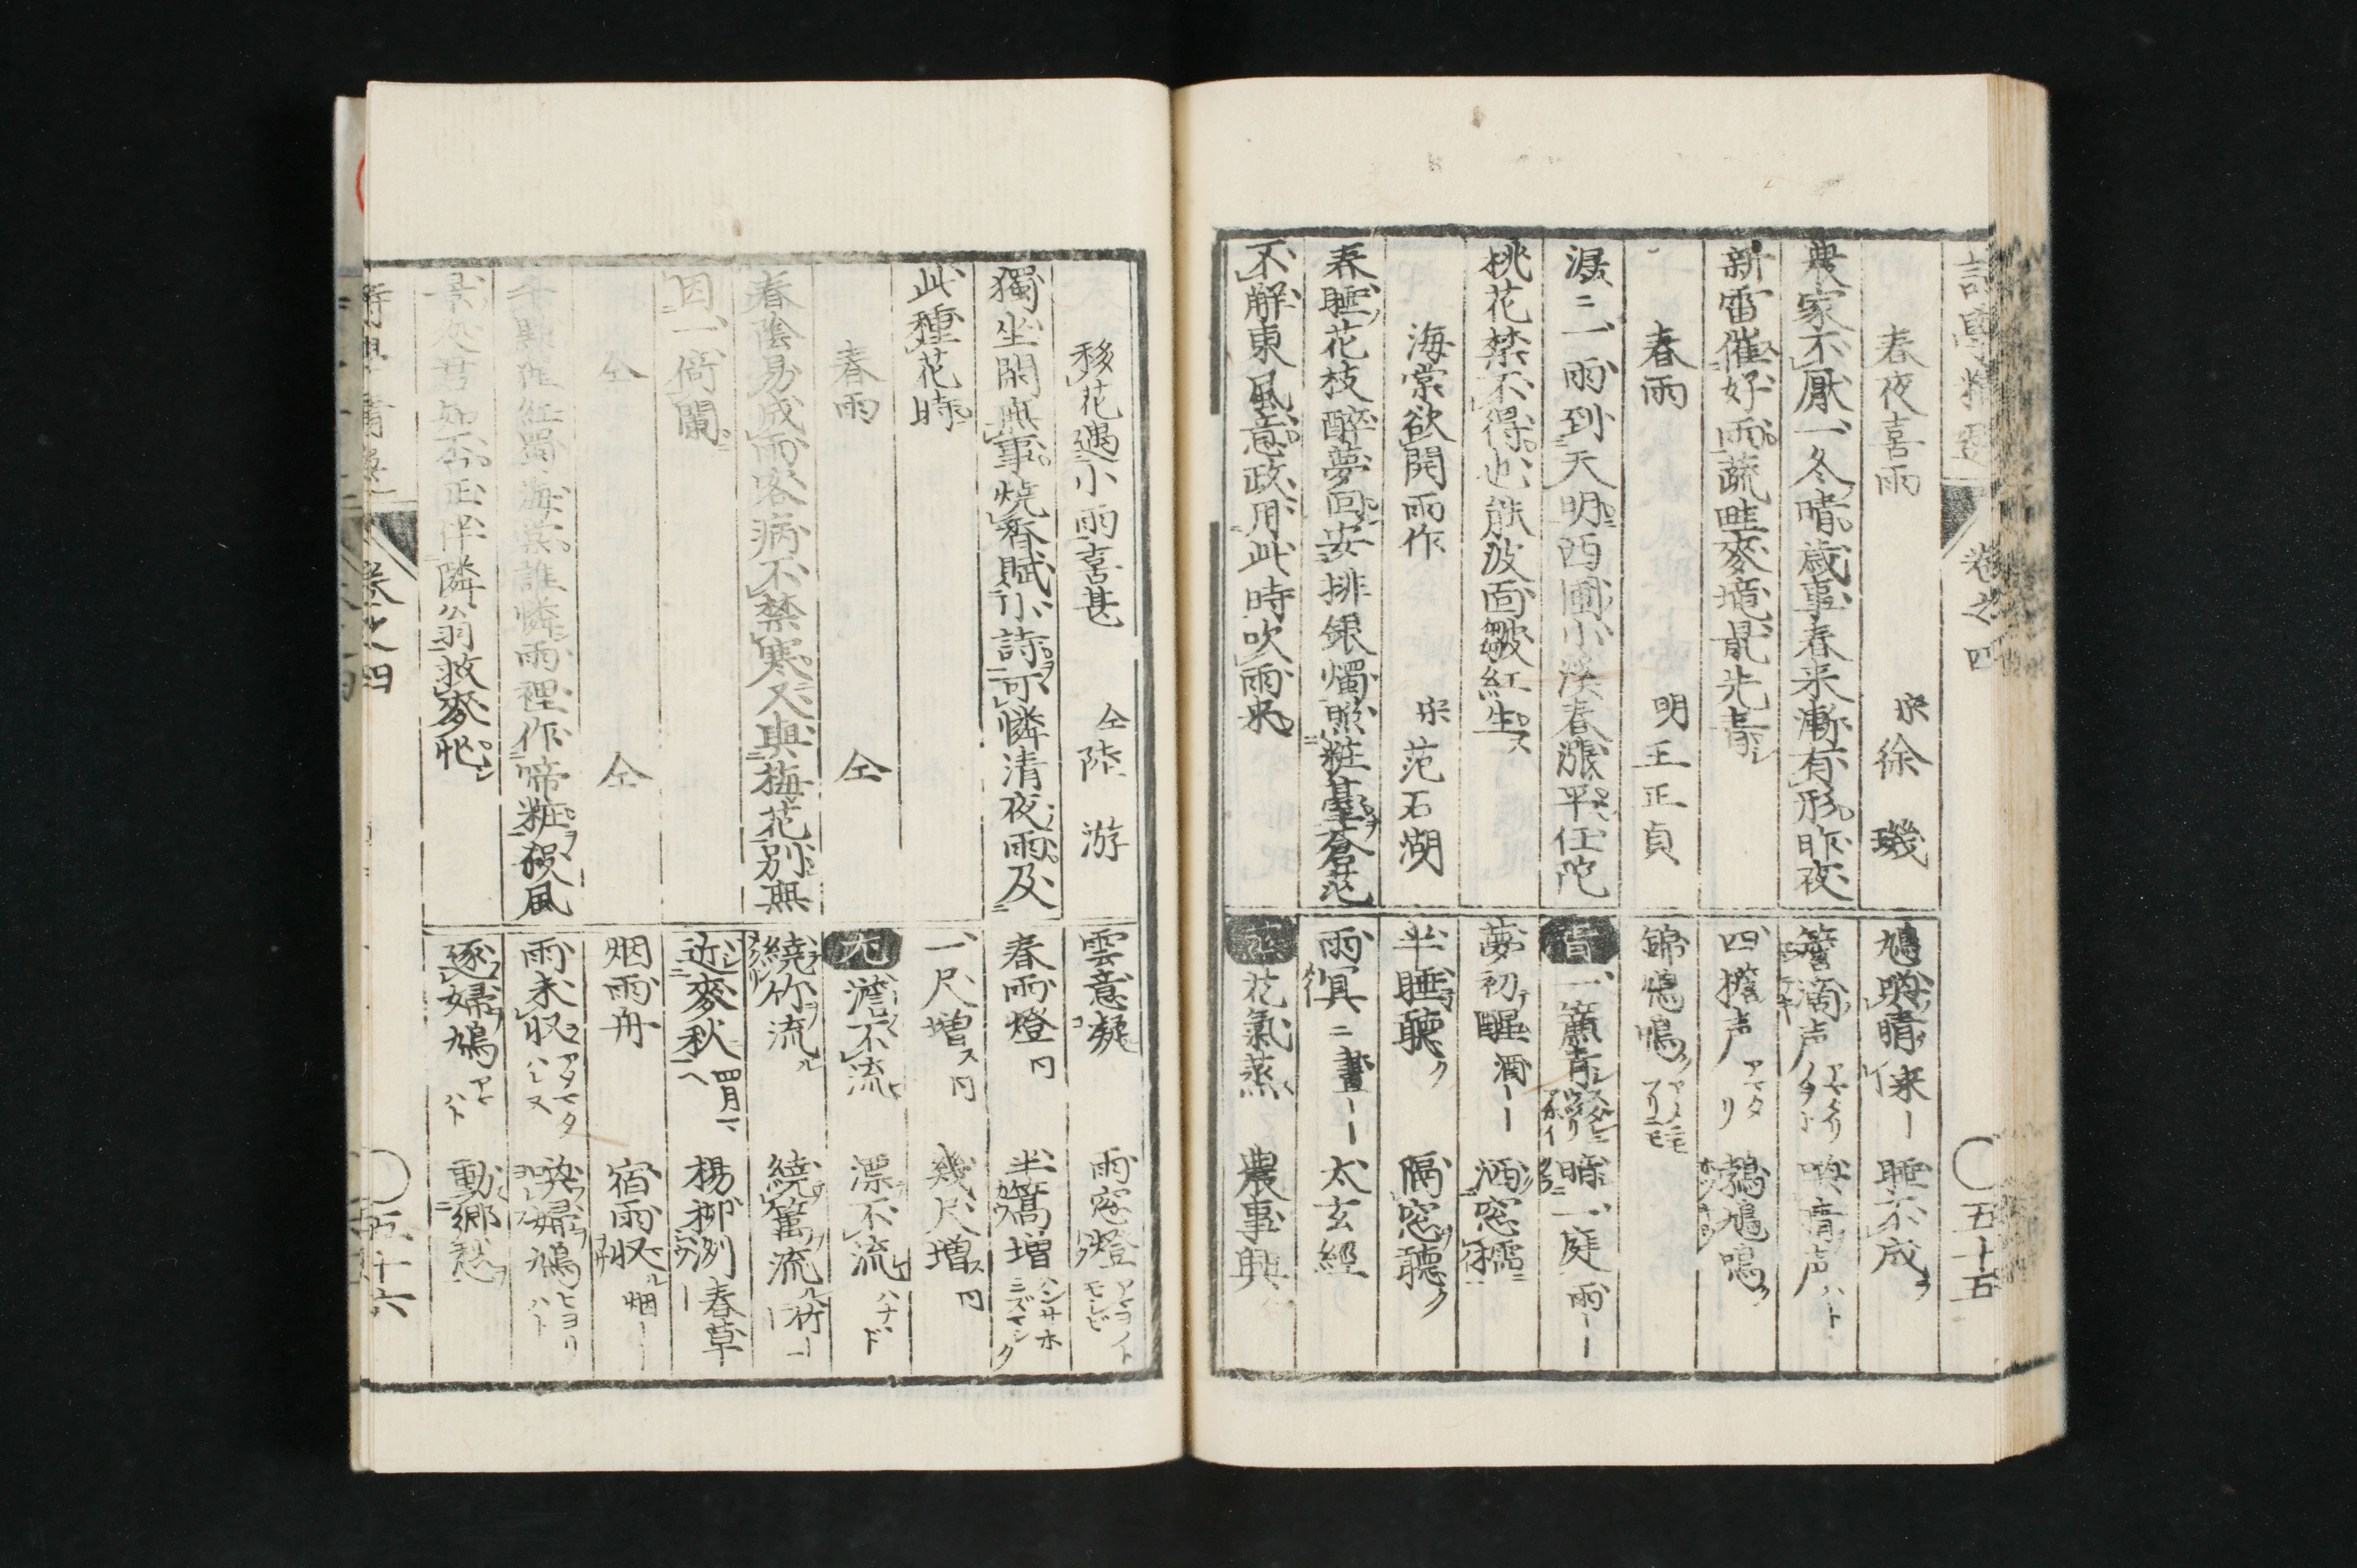 卷之四
五十五
春夜喜雨 宋徐璣
農家不厭一冬晴歳事春来漸有形昨夜
新雷催好雨蔬畦麥壠最先青
春雨 明王正貞
濕ニ一雨到天明西圃小溪春漲平任陀
桃花禁不得也能波面皺紅生
海棠欲開雨作 宋范石湖
春睡花枝醉夢回安排銀燭照粧臺蒼茫
不解東風意政用此時吹雨來
鳩喚晴
睡不成
簷滴声
喚晴声
四擔声
鵓鳩鳴
錦鳩鳴
一簾青
暗一庭
夢初醒
洒窓櫺
半睡聽
隔窓聽
雨冥ニ
太玄經
花氣蒸
農事興
移花遇小雨喜甚 仝陸游
獨坐閑無事焼香賦小詩可憐清夜雨及
此種花時
春雨 仝
春陰易成雨客病不禁寒又與梅花別無
因一倚闌
仝 仝
千點猩紅蜀海棠誰憐雨裡作啼粧殺風
景処君知否正伴隣翁救麥忙
雲意凝
雨窓燈
春雨燈
半篙増
一尺増
幾尺増
尤 澹不流
漂不流
繞竹流
繞籬流
近麥秋
楊柳洲
烟雨舟
宿雨収
雨未収
喚婦鳩
逐婦鳩
動郷愁
卷之四
五十六